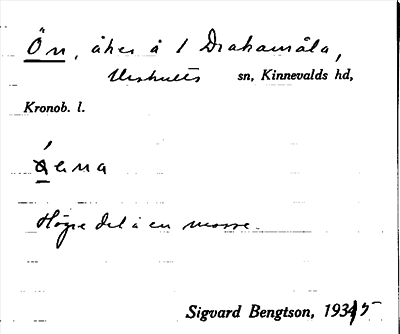 Ön, åker å 1 Drakamåla,
Urshults sn, Kinnevalds hd,
Kronob. l.
Högre del i en mosse.
Sigvard Bengtson, 1935